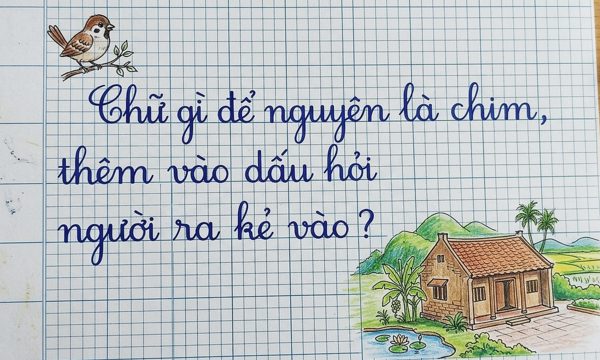 Chữ gì để nguyên là chim,
thêm vào dấu hỏi
người ra kẻ vào?